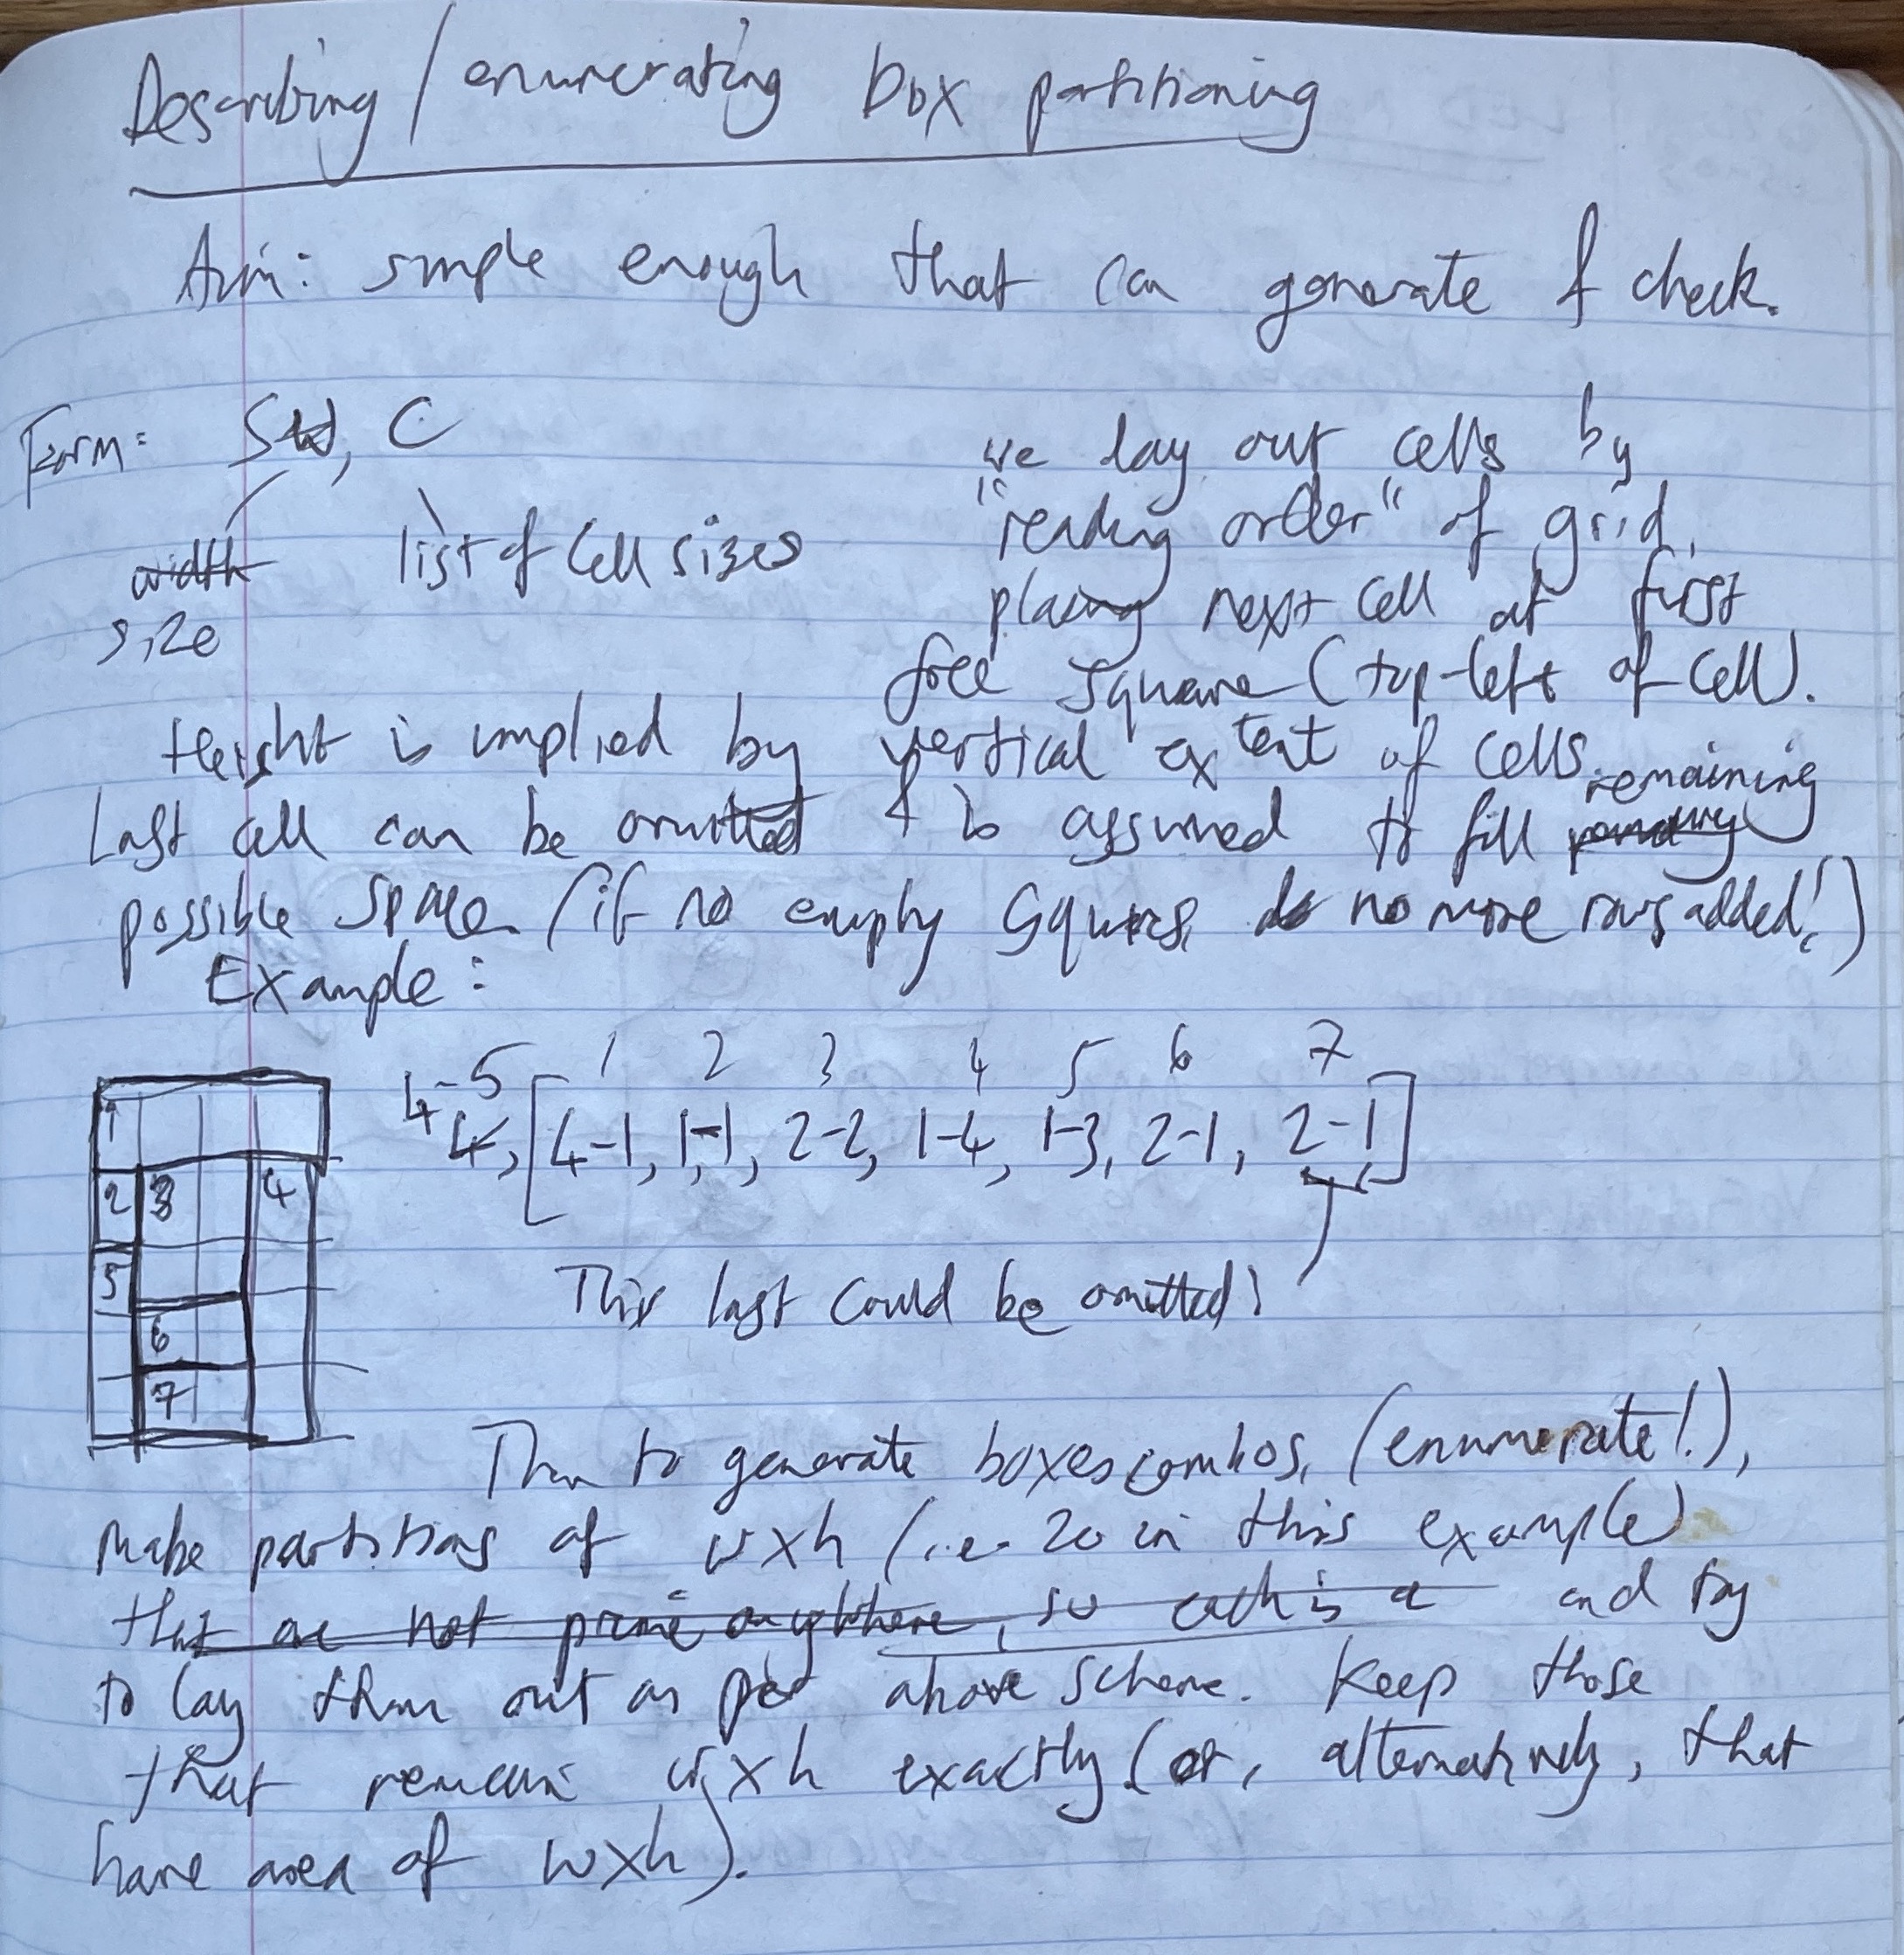 Describing / enumerating box partitioning
Aim: simple enough that can generate & check.
Form: S W, C
width
size
list of cell sizes
we lay out cells by
"reading order" of grid,
placing next cell at first
free square (top-left of cell).
Height is implied by vertical extent of cells.
Last cell can be omitted & is assumed to fill remaining
possible space (if no empty squares, no more rows added!)
Example:
1 2 3 4 5 6 7
4-5
4, [4-1, 1-1, 2-2, 1-4, 1-3, 2-1, 2-1]
1
2 3 4
5
6
7
This last could be omitted!
Then to generate boxes combos, (enumerate!),
make partitions of w×h (i.e. 20 in this example)
that are not prime anywhere, so each is a and try
to lay them out as per above scheme. Keep those
that remain w×h exactly (or, alternatively, that
have area of w×h).